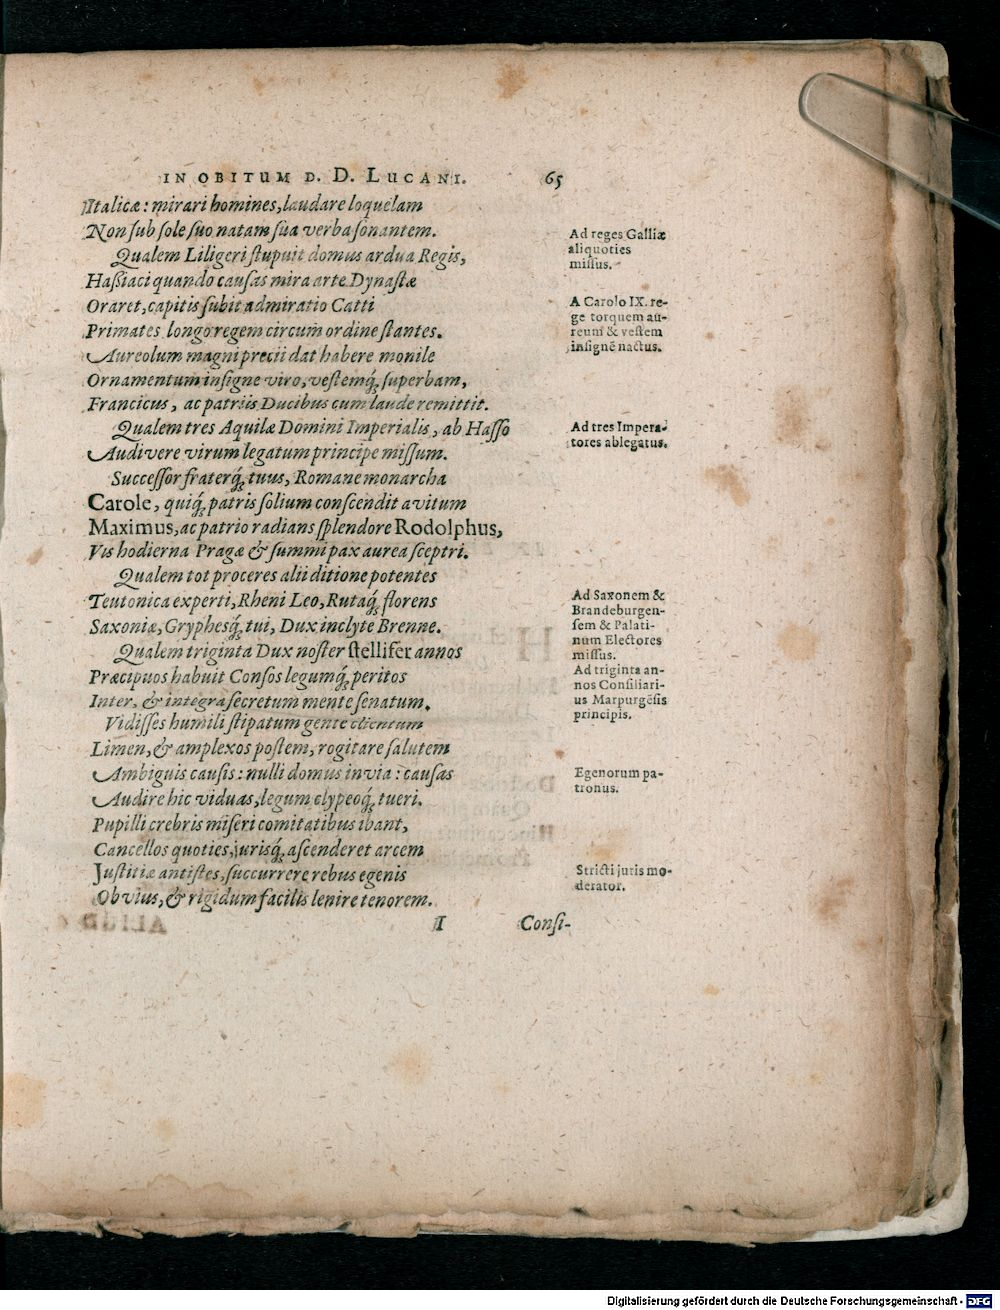 IN OBITUM D. D. LUCANI. 65
Italicæ: mirari homines, laudare loquelam
Non sub sole suo natam sua verba sonantem.
Qualem Liligeri stupuit domus ardua Regis,
Haßiaci quando causas mira arte Dynastæ
Oraret, capitis subit admiratio Catti
Primates longo regem circum ordine stantes.
Aureolum magni precii dat habere monile
Ornamentum insigne viro, vestemq́; superbam,
Francicus, ac patriis Ducibus cum laude remittit.
Qualem tres Aquilæ Domini Imperialis, ab Hasso
Audivere virum legatum principe missum.
Successor fraterq́; tuus, Romane monarcha
Carole, quiq́; patris solium conscendit avitum
Maximus, ac patrio radians splendore Rodolphus,
Vis hodierna Pragæ & summi pax aurea sceptri.
Qualem tot proceres alii ditione potentes
Teutonica experti, Rheni Leo, Rutaq́; florens
Saxoniæ, Gryphesq́; tui, Dux inclyte Brenne.
Qualem triginta Dux noster stellifer annos
Præcipuos habuit Consos legumq́; peritos
Inter, & integra secretum mente senatum.
Vidisses humili stipatum gente clientum
Limen, & amplexos postem, rogitare salutem
Ambiguis causis: nulli domus invia: causas
Audire hic viduas, legum clypeoq́; tueri.
Pupilli crebris miseri comitatibus ibant,
Cancellos quoties, jurisq́; ascenderet arcem
Justitiæ antistes, succurrere rebus egenis
Obvius, & rigidum facilis lenire tenorem.
I Consi-
Ad reges Galliæ
aliquoties
missus.
A Carolo IX. re-
ge torquem au-
reum & vestem
insignē nactus.
Ad tres Impera-
tores ablegatus.
Ad Saxonem &
Brandeburgen-
sem & Palati-
num Electores
missus.
Ad triginta an-
nos Consiliari-
us Marpurgēsis
principis.
Egenorum pa-
tronus.
Stricti juris mo-
derator.
Digitalisierung gefördert durch die Deutsche Forschungsgemeinschaft - DFG